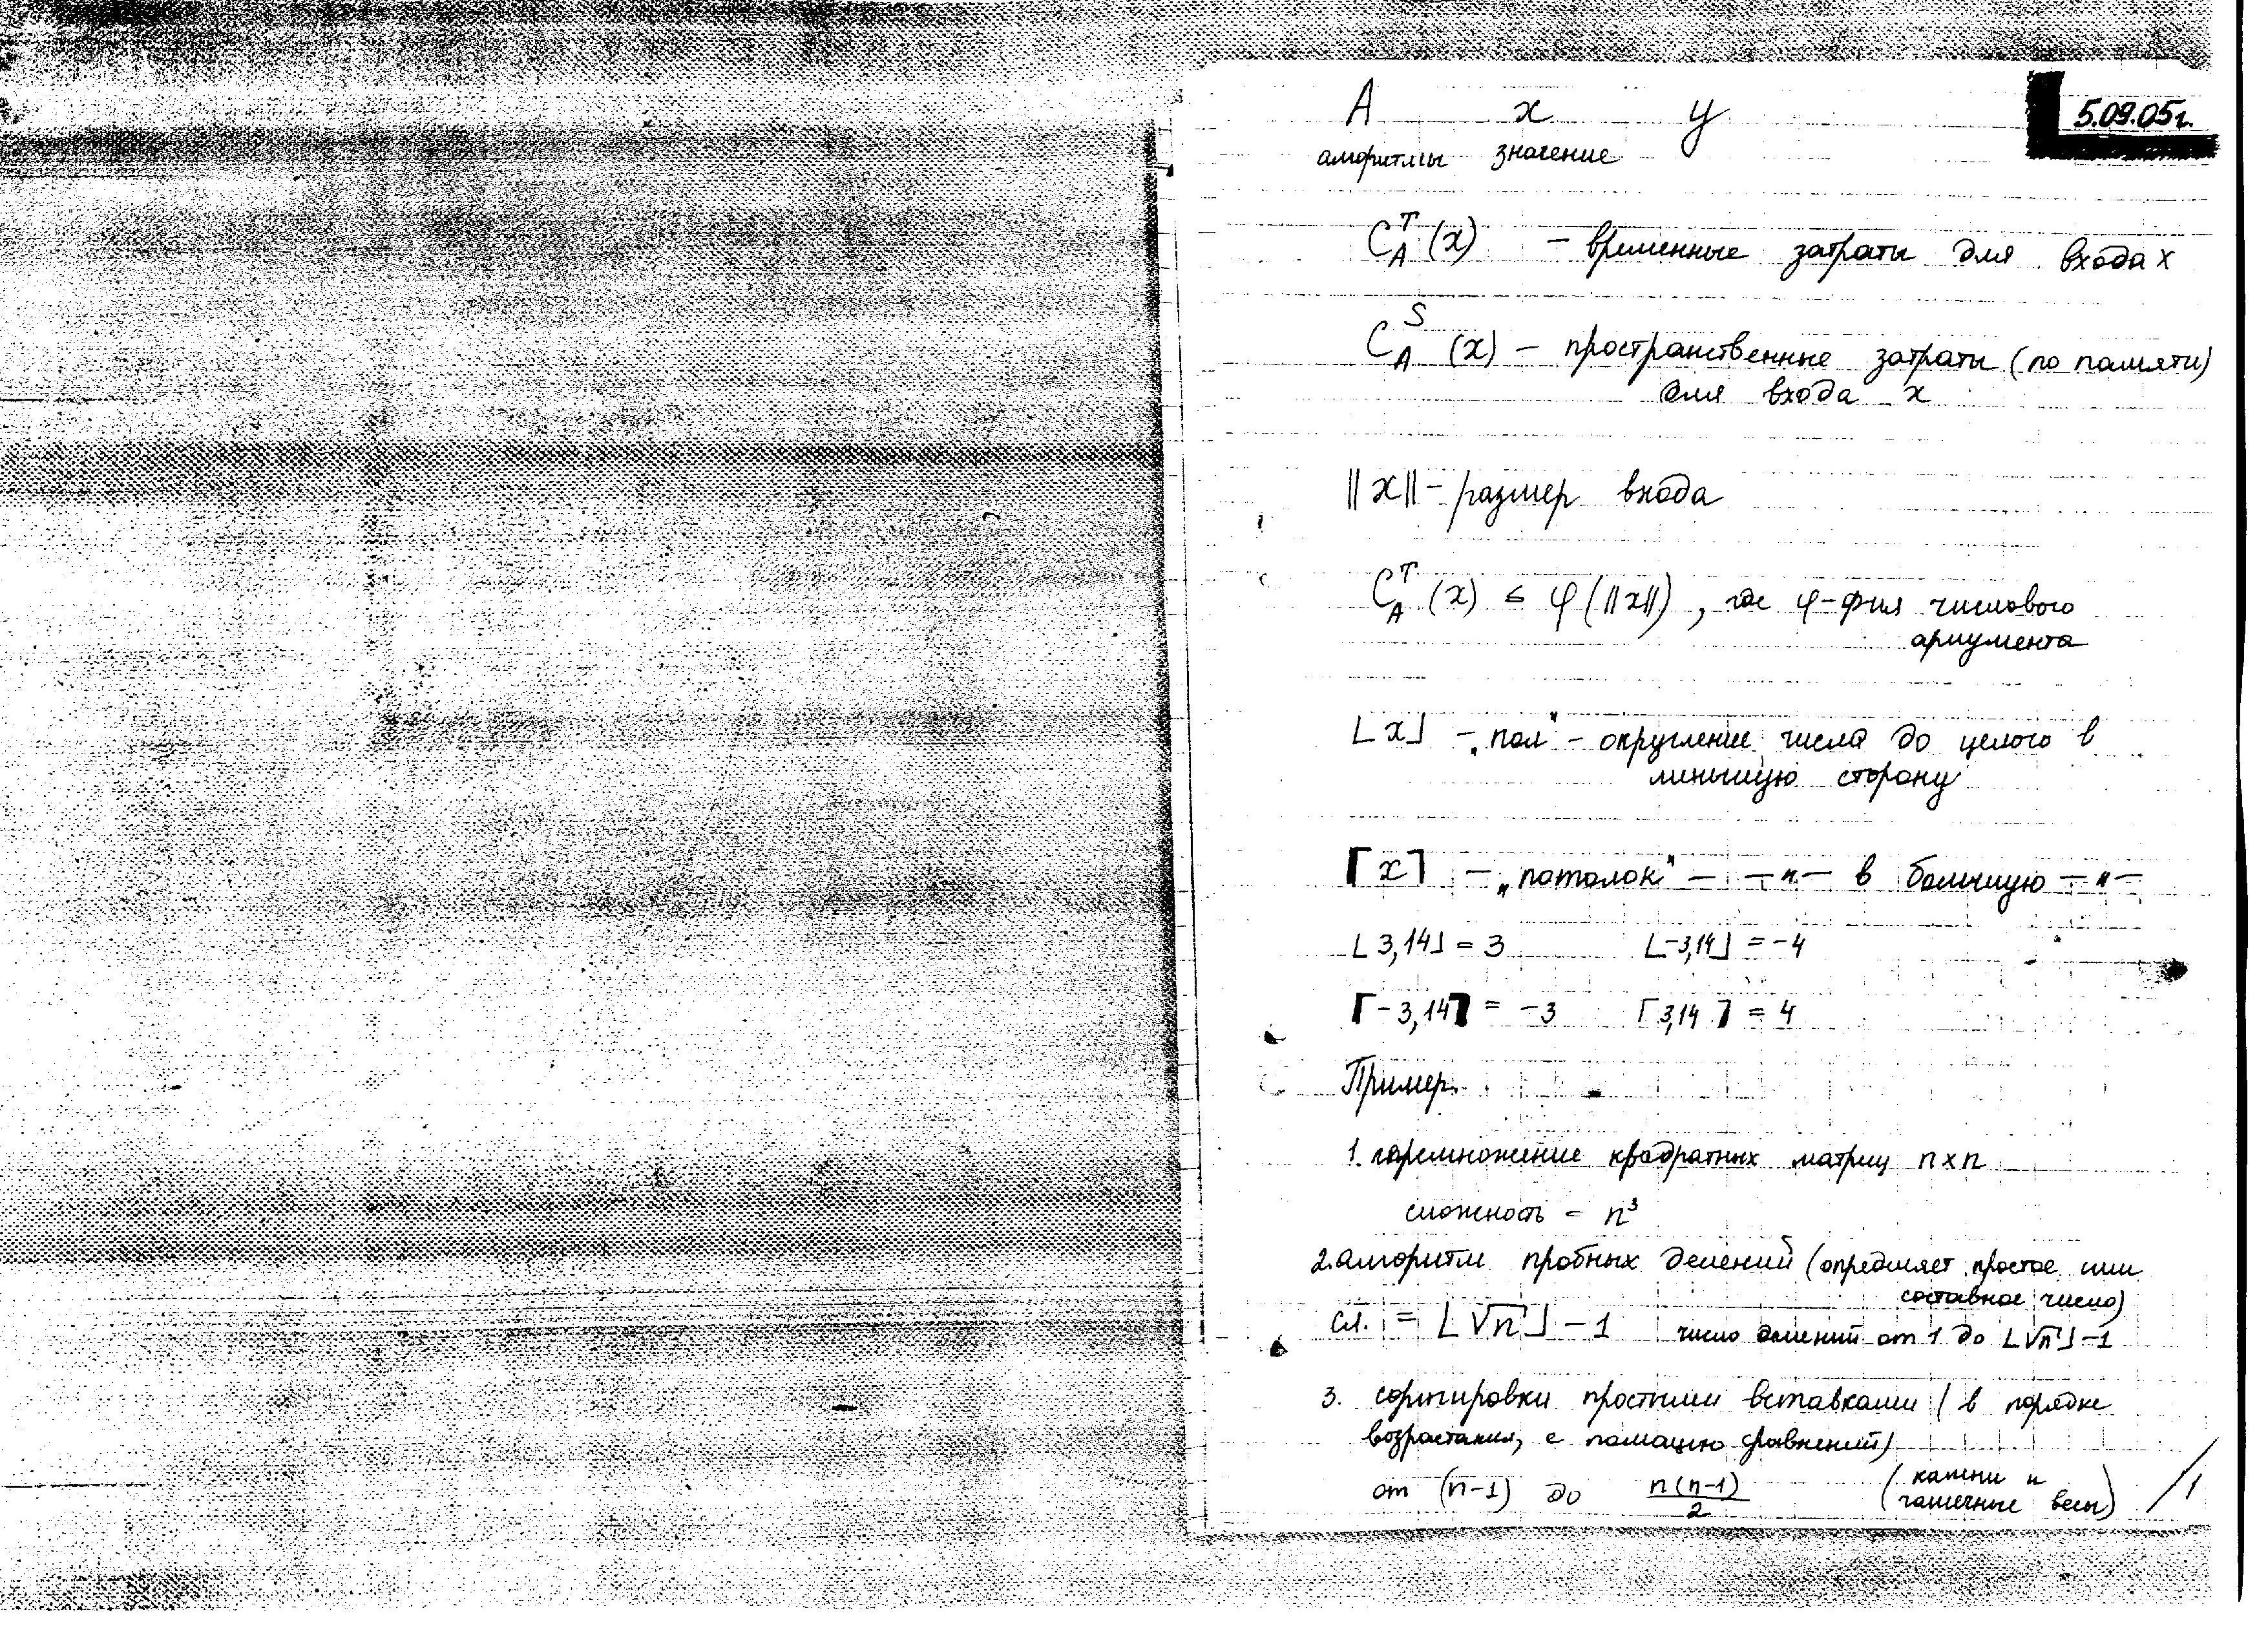 A x y 5.09.05г.
алгоритмы значение
C_A^T (x) – временные затраты для входа x
C_A^S (x) – пространственные затраты (по памяти)
для входа x
||x|| – размер входа
C_A^T (x) ≤ φ(||x||), где φ-фия числового
аргумента
⌊x⌋ – „пол" – округление числа до целого в
меньшую сторону
⌈x⌉ – „потолок" – –"– в большую –"–
⌊3,14⌋ = 3 ⌊-3,14⌋ = -4
⌈-3,14⌉ = -3 ⌈3,14⌉ = 4
Пример.
1. перемножение квадратных матриц n x n
сложность = n³
2. алгоритм пробных делений (определяет простое или
составное число)
сл. = ⌊√n⌋ – 1 число делений от 1 до ⌊√n⌋ – 1
3. сортировки простыми вставками (в порядке
возрастания, с помощью сравнений)
от (n-1) до n(n-1)/2 (камни и
чашечные весы) /1